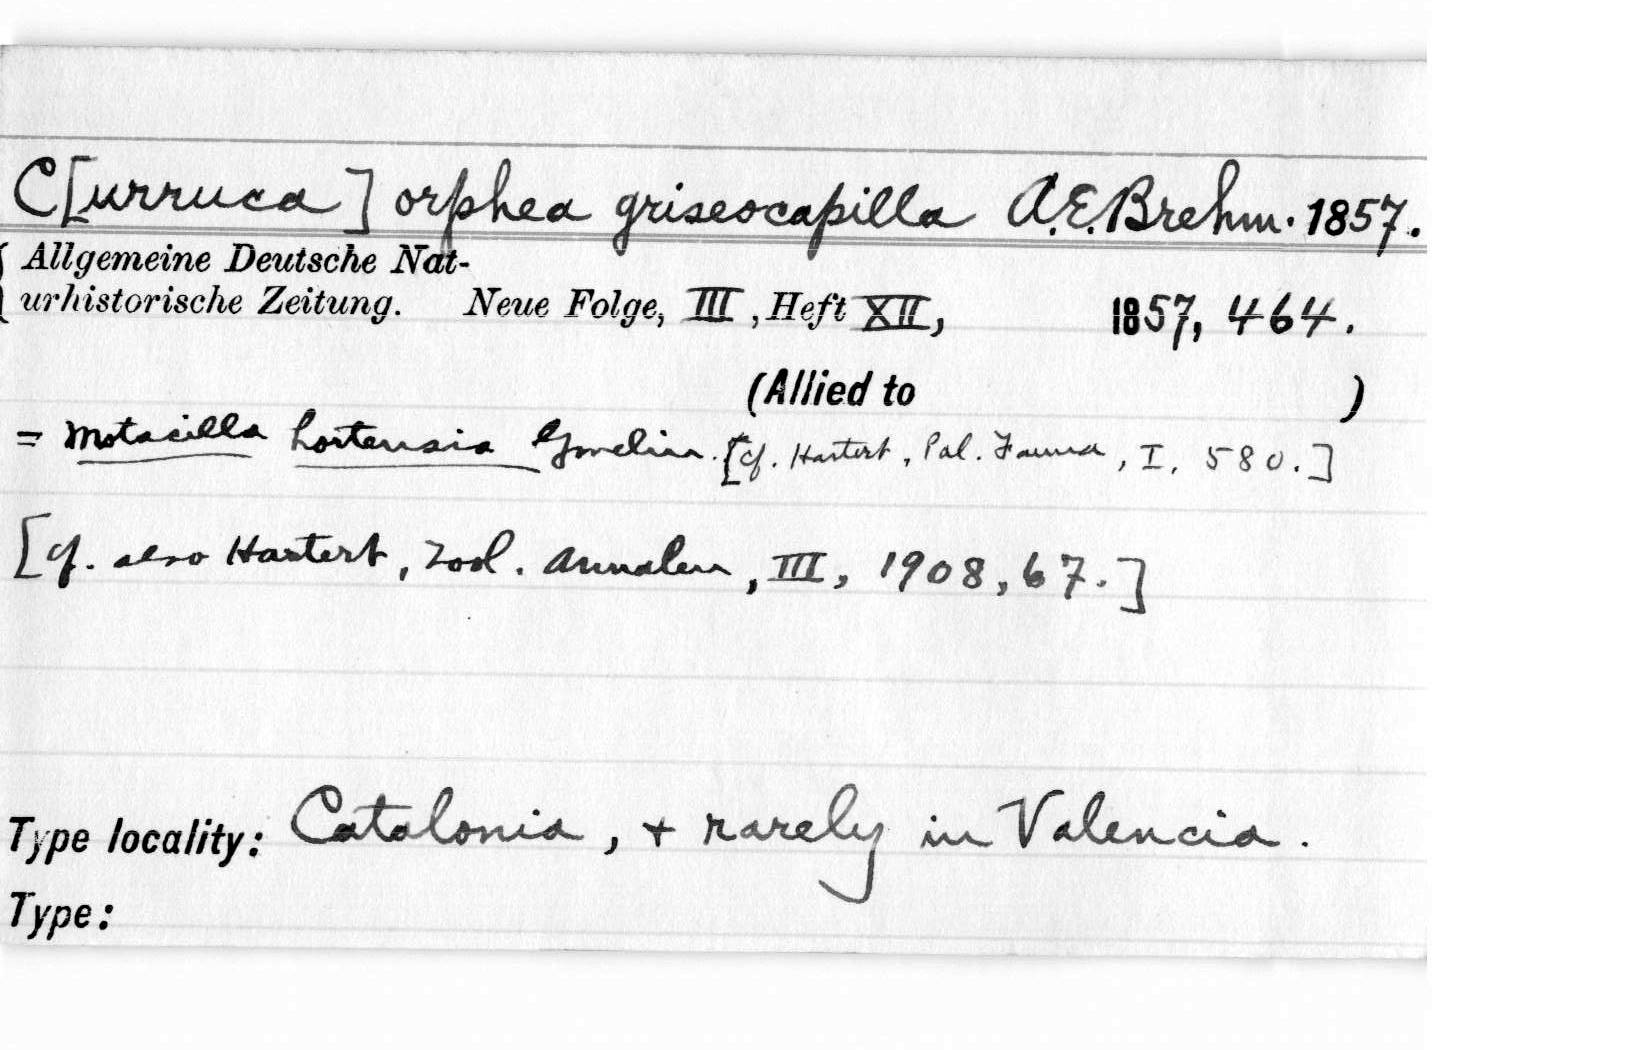 C[urruca] orphea griseocapilla A.E. Brehm. 1857.
Allgemeine Deutsche Nat-
urhistorische Zeitung. Neue Folge, III, Heft XII, 1857, 464.
(Allied to )
= Motacilla hortensis Gmelin. [cf. Hartert, Pal. Fauna, I, 580.]
[cf. also Hartert, Zool. Annalen, III, 1908, 67.]
Type locality: Catalonia, + rarely in Valencia.
Type: